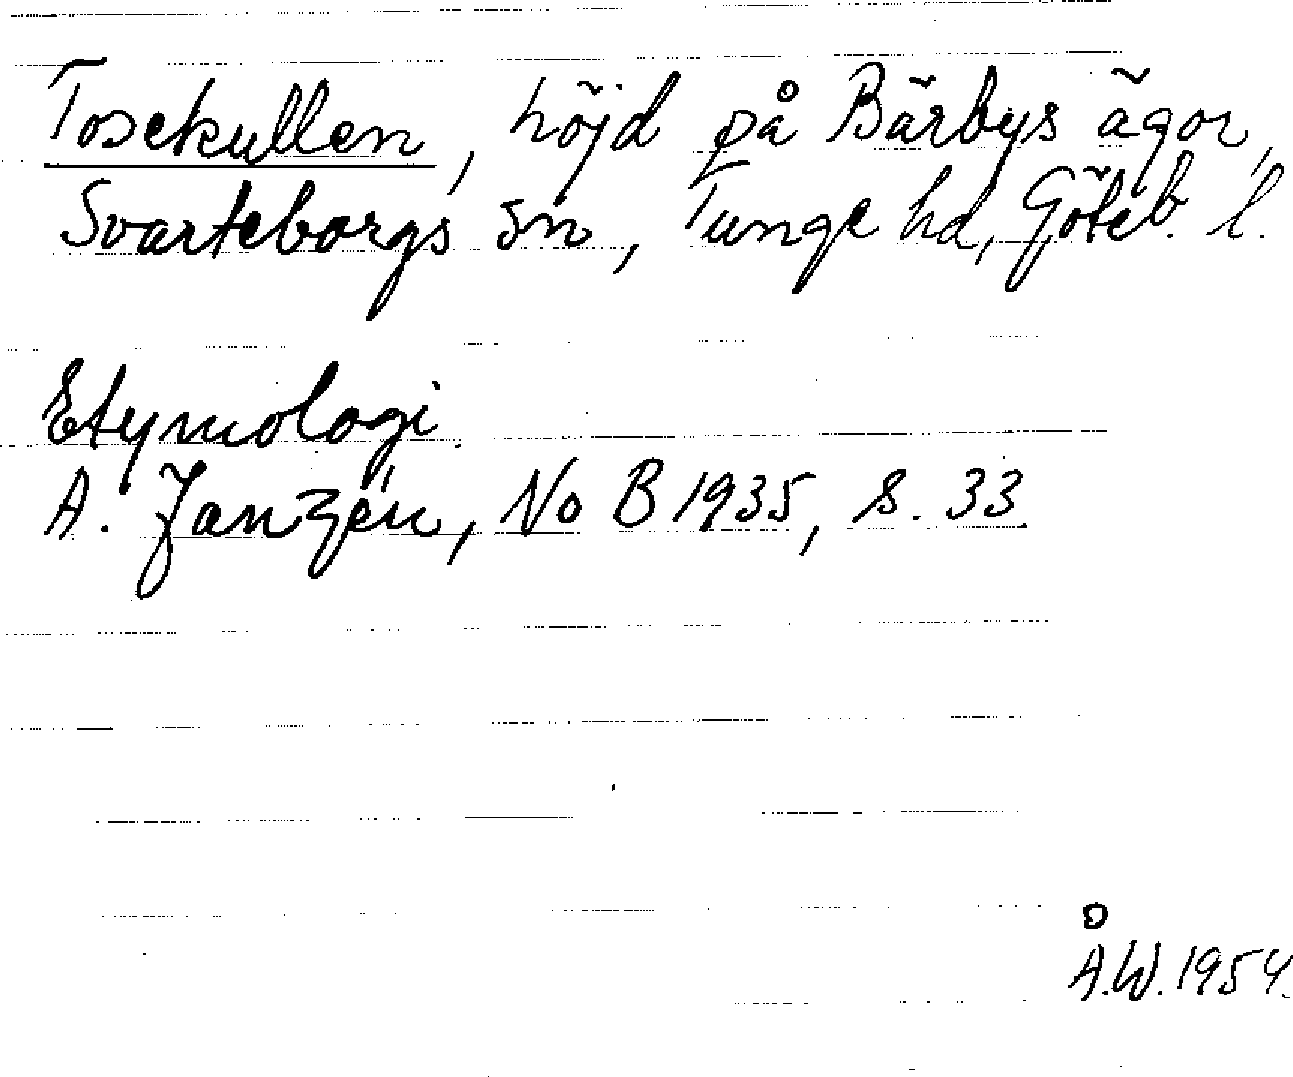 Tosekullen, höjd på Bärbys ägor,
Svarteborgs sn, Tunge hd, Göteb. l.
Etymologi.
A. Janzén, No B 1935, s. 33.
Å.W. 1954.